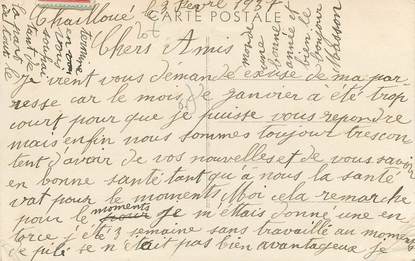 Chailloué le 3 Fevre 1937
CARTE POSTALE
Chers Amis
Je vient vous demande excuse de ma par
resse car le mois de janvier a été trop
court pour que je puisse vous repondre
mais enfin nous sommes toujour trescon
tent d'avoir de vos nouvelles et de vous savoir
en bonne santé tant qu'a nous la santé
vat pour le moments Moi cela remarche
pour le moments Je m'ettais donné une en
torce j'été 3 semaine sans travaillé au moment
de pilé se n'était pas bien avantageux je
monde
une
bonne
année et
bien le
bonjour
Masson
en vous
souhai
tant de
la part
de tout le